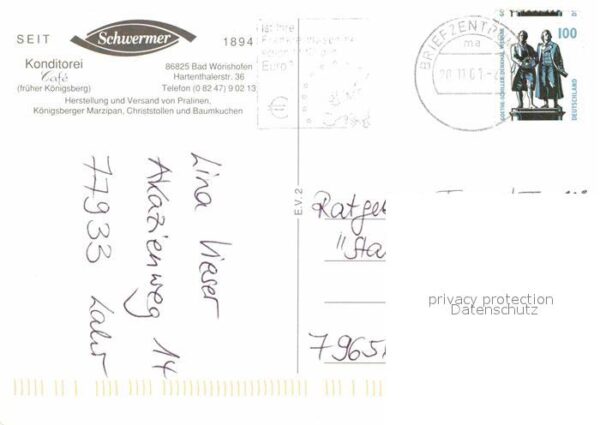 SEIT Schwermer 1894
Konditorei
Café
(früher Königsberg)
86825 Bad Wörishofen
Hartenthalerstr. 36
Telefon (0 82 47) 9 02 13
Herstellung und Versand von Pralinen,
Königsberger Marzipan, Christstollen und Baumkuchen
Euro?
BRIEFZENTR
ma
20.11.01
100
GOETHE-SCHILLER-DENKMAL WEIMAR
DEUTSCHLAND
Lina Wieser
Akazienweg 14
77933 Lahr
E.V. 2
Ratge
"Sta
7965
privacy protection
Datenschutz